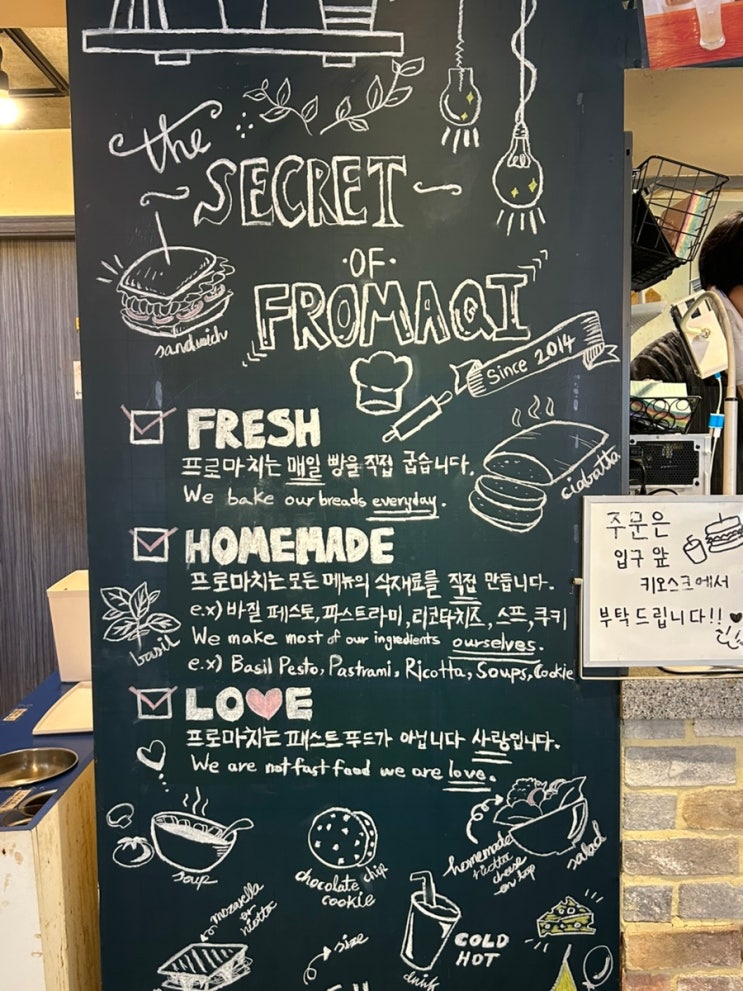 the
SECRET
·OF·
FROMAQI
sandwich
Since 2014
FRESH
프로마치는 매일 빵을 직접 굽습니다.
We bake our breads everyday.
ciabatta
HOMEMADE
프로마치는 모든 메뉴의 식재료를 직접 만듭니다.
e.x) 바질 페스토, 파스트라미, 리코타치즈, 스프, 쿠키
We make most of our ingredients ourselves.
e.x) Basil Pesto, Pastrami, Ricotta, Soups, Cookie
basil
LO♥E
프로마치는 패스트 푸드가 아닙니다 사랑입니다.
We are not fast food we are love.
soup
chocolate chip
cookie
homemade
ricotta
cheese
on top
salad
mozarella
or
ricotta
size
COLD
HOT
drink
주문은
입구 앞
키오스크에서
부탁드립니다!! ♥